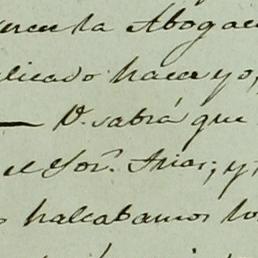 la Abogac
licado hace yo,
— V. sabrá que
el Sor. Arias; y
hallabamos